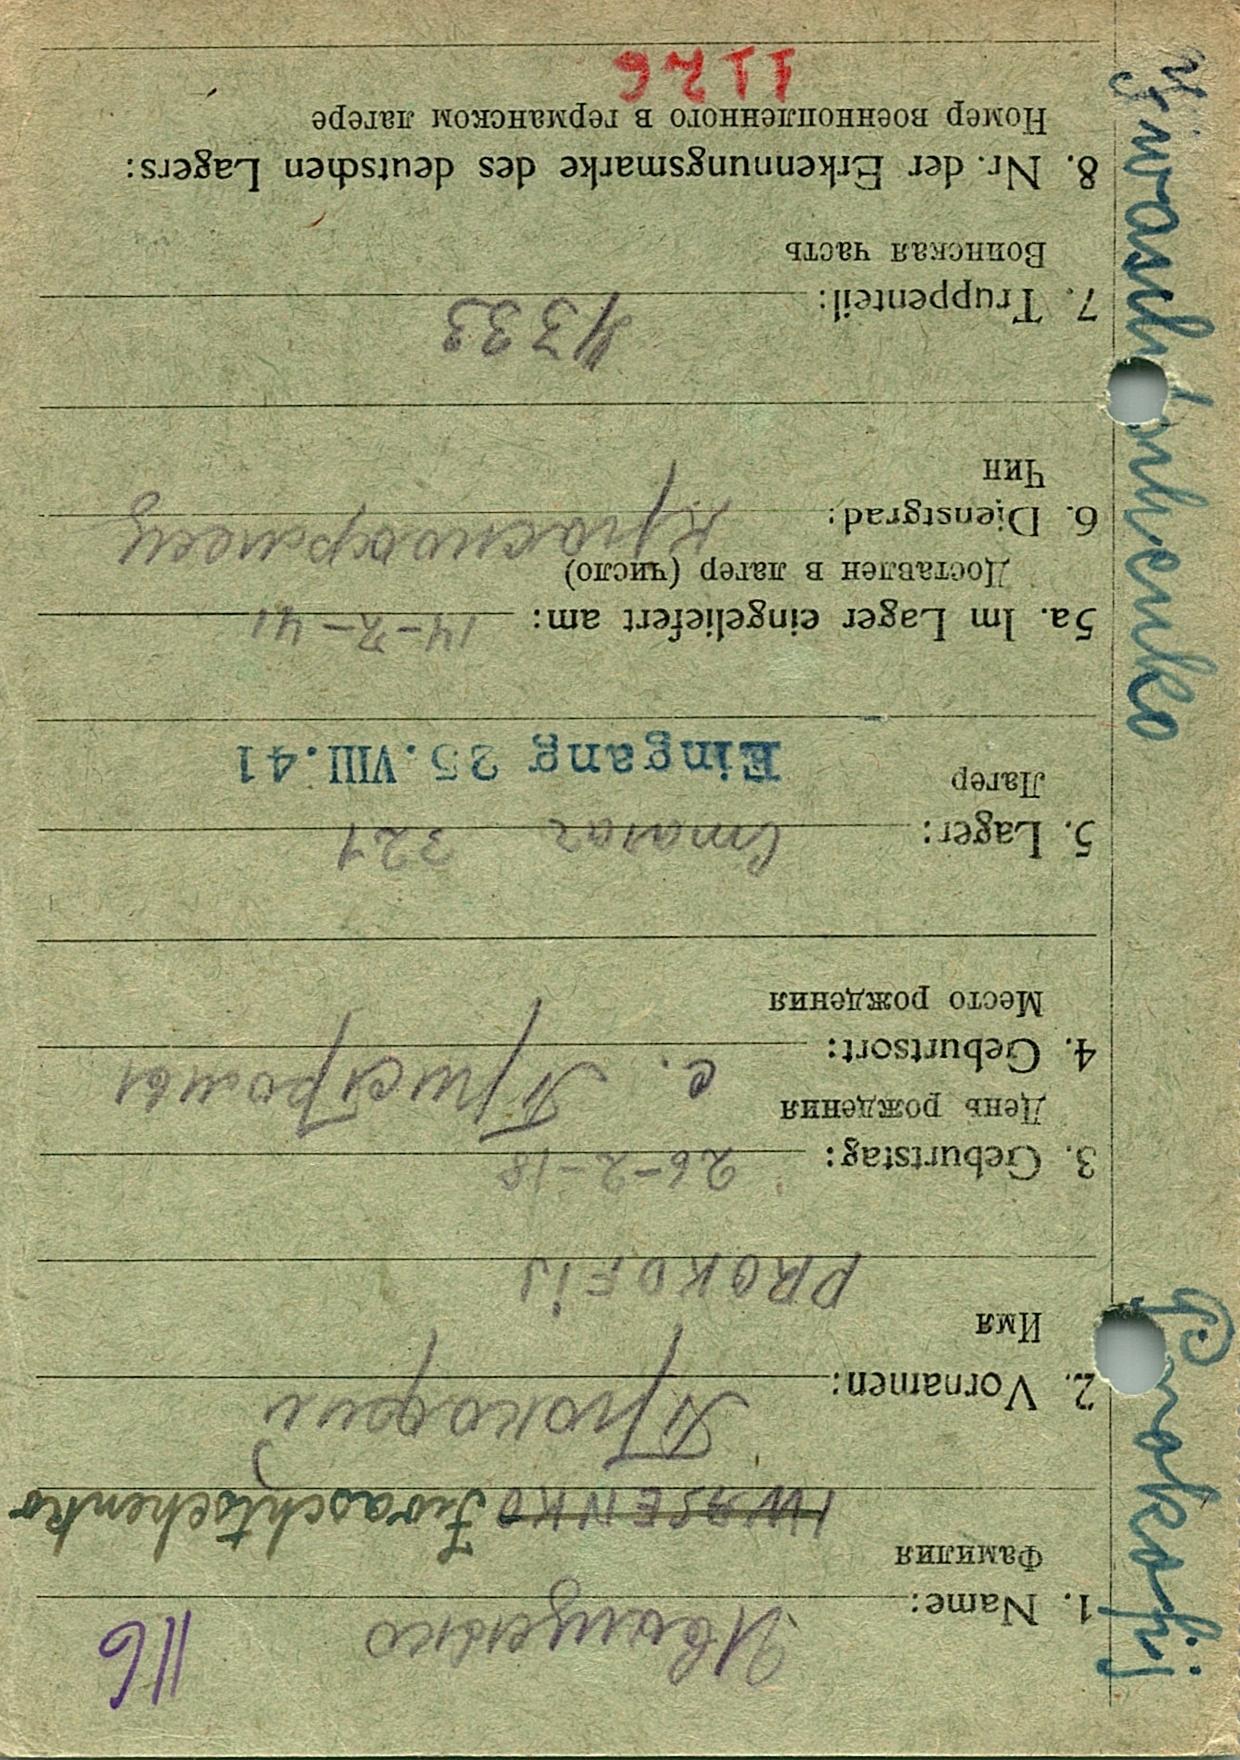 116
1. Name: Иващенко
Фамилия
IWASENKO Iwaschtschenko
2. Vornamen: Прокофий
Имя
PROKOFIJ
3. Geburtstag: 26-2-18
День рождения
4. Geburtsort: с. Пристромы
Место рождения
5. Lager: Сталаг 321
Лагер
Eingang 25.VIII.41
5a. Im Lager eingeliefert am: 14-7-41
Доставлен в лагер (число)
6. Dienstgrad: Красноармеец
Чин
7. Truppenteil: 4333
Воинская часть
8. Nr. der Erkennungsmarke des deutschen Lagers:
Номер военнопленного в германском лагере
1126
Prokofij